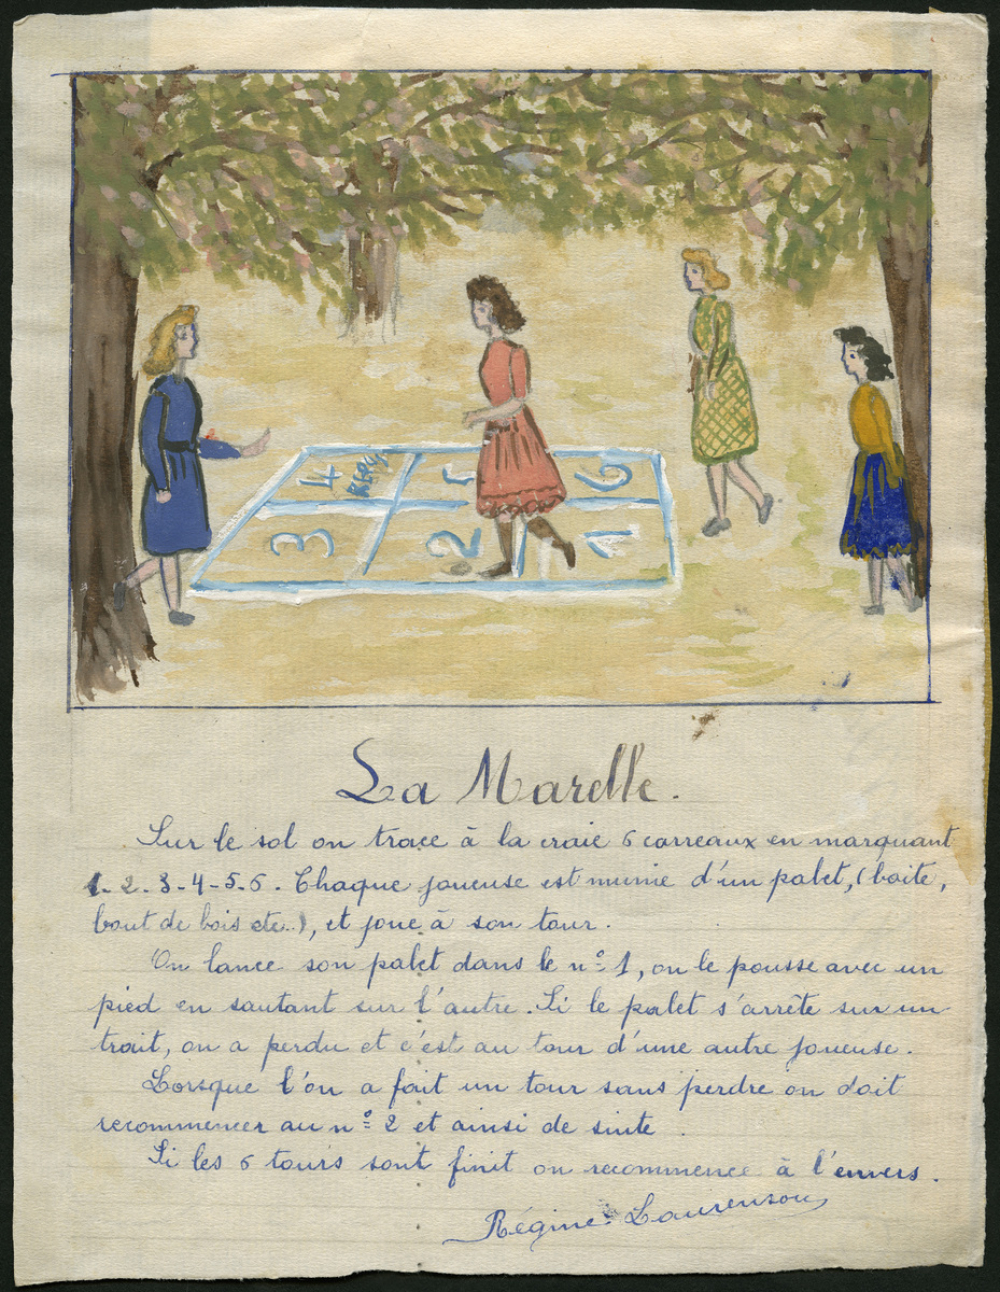 4
5
6
3
2
1
La Marelle.
Sur le sol on trace à la craie 6 carreaux en marquant
1-2-3-4-5-6. Chaque joueuse est munie d'un palet, (boite,
bout de bois etc..), et joue à son tour.
On lance son palet dans le nº 1, on le pousse avec un
pied en sautant sur l'autre. Si le palet s'arrête sur un
trait, on a perdu et c'est au tour d'une autre joueuse.
Lorsque l'on a fait un tour sans perdre on doit
recommencer au nº 2 et ainsi de suite.
Si les 6 tours sont finit on recommence à l'envers.
Régine Laurenson